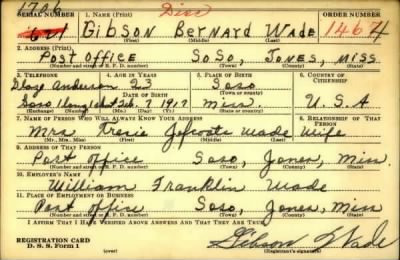 1706 Diss
SERIAL NUMBER 1. NAME (Print) ORDER NUMBER
Gibson Bernard Wade 1467
2. ADDRESS (Print)
Post Office SoSo, Jones, Miss.
(Number and street or R. F. D. number) (Town) (County) (State)
3. TELEPHONE 4. AGE IN YEARS 5. PLACE OF BIRTH 6. COUNTRY OF CITIZENSHIP
Anderson 23 Soso
DATE OF BIRTH (Town or county)
Soso 1 long 1 short Feb. 7 1917 Miss. U.S.A
(Exchange) (Number) (Mo.) (Day) (Yr.) (State or country)
7. NAME OF PERSON WHO WILL ALWAYS KNOW YOUR ADDRESS 8. RELATIONSHIP OF THAT PERSON
Mrs. Jefcoats Wade Wife
(Mr., Mrs., Miss) (First) (Middle) (Last)
9. ADDRESS OF THAT PERSON
Post office Soso, Jones, Miss.
(Number and street or R. F. D. number) (Town) (County) (State)
10. EMPLOYER'S NAME
William Franklin Wade
11. PLACE OF EMPLOYMENT OR BUSINESS
Post office Soso, Jones, Miss
(Number and street or R. F. D. number) (Town) (County) (State)
I AFFIRM THAT I HAVE VERIFIED ABOVE ANSWERS AND THAT THEY ARE TRUE.
REGISTRATION CARD Gibson Wade
D. S. S. Form 1 (over) (Registrant's signature)